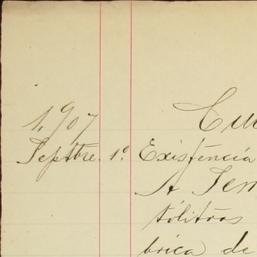 1,907
Septbre. 1º Existencia
A Ten
tólitros
brica de